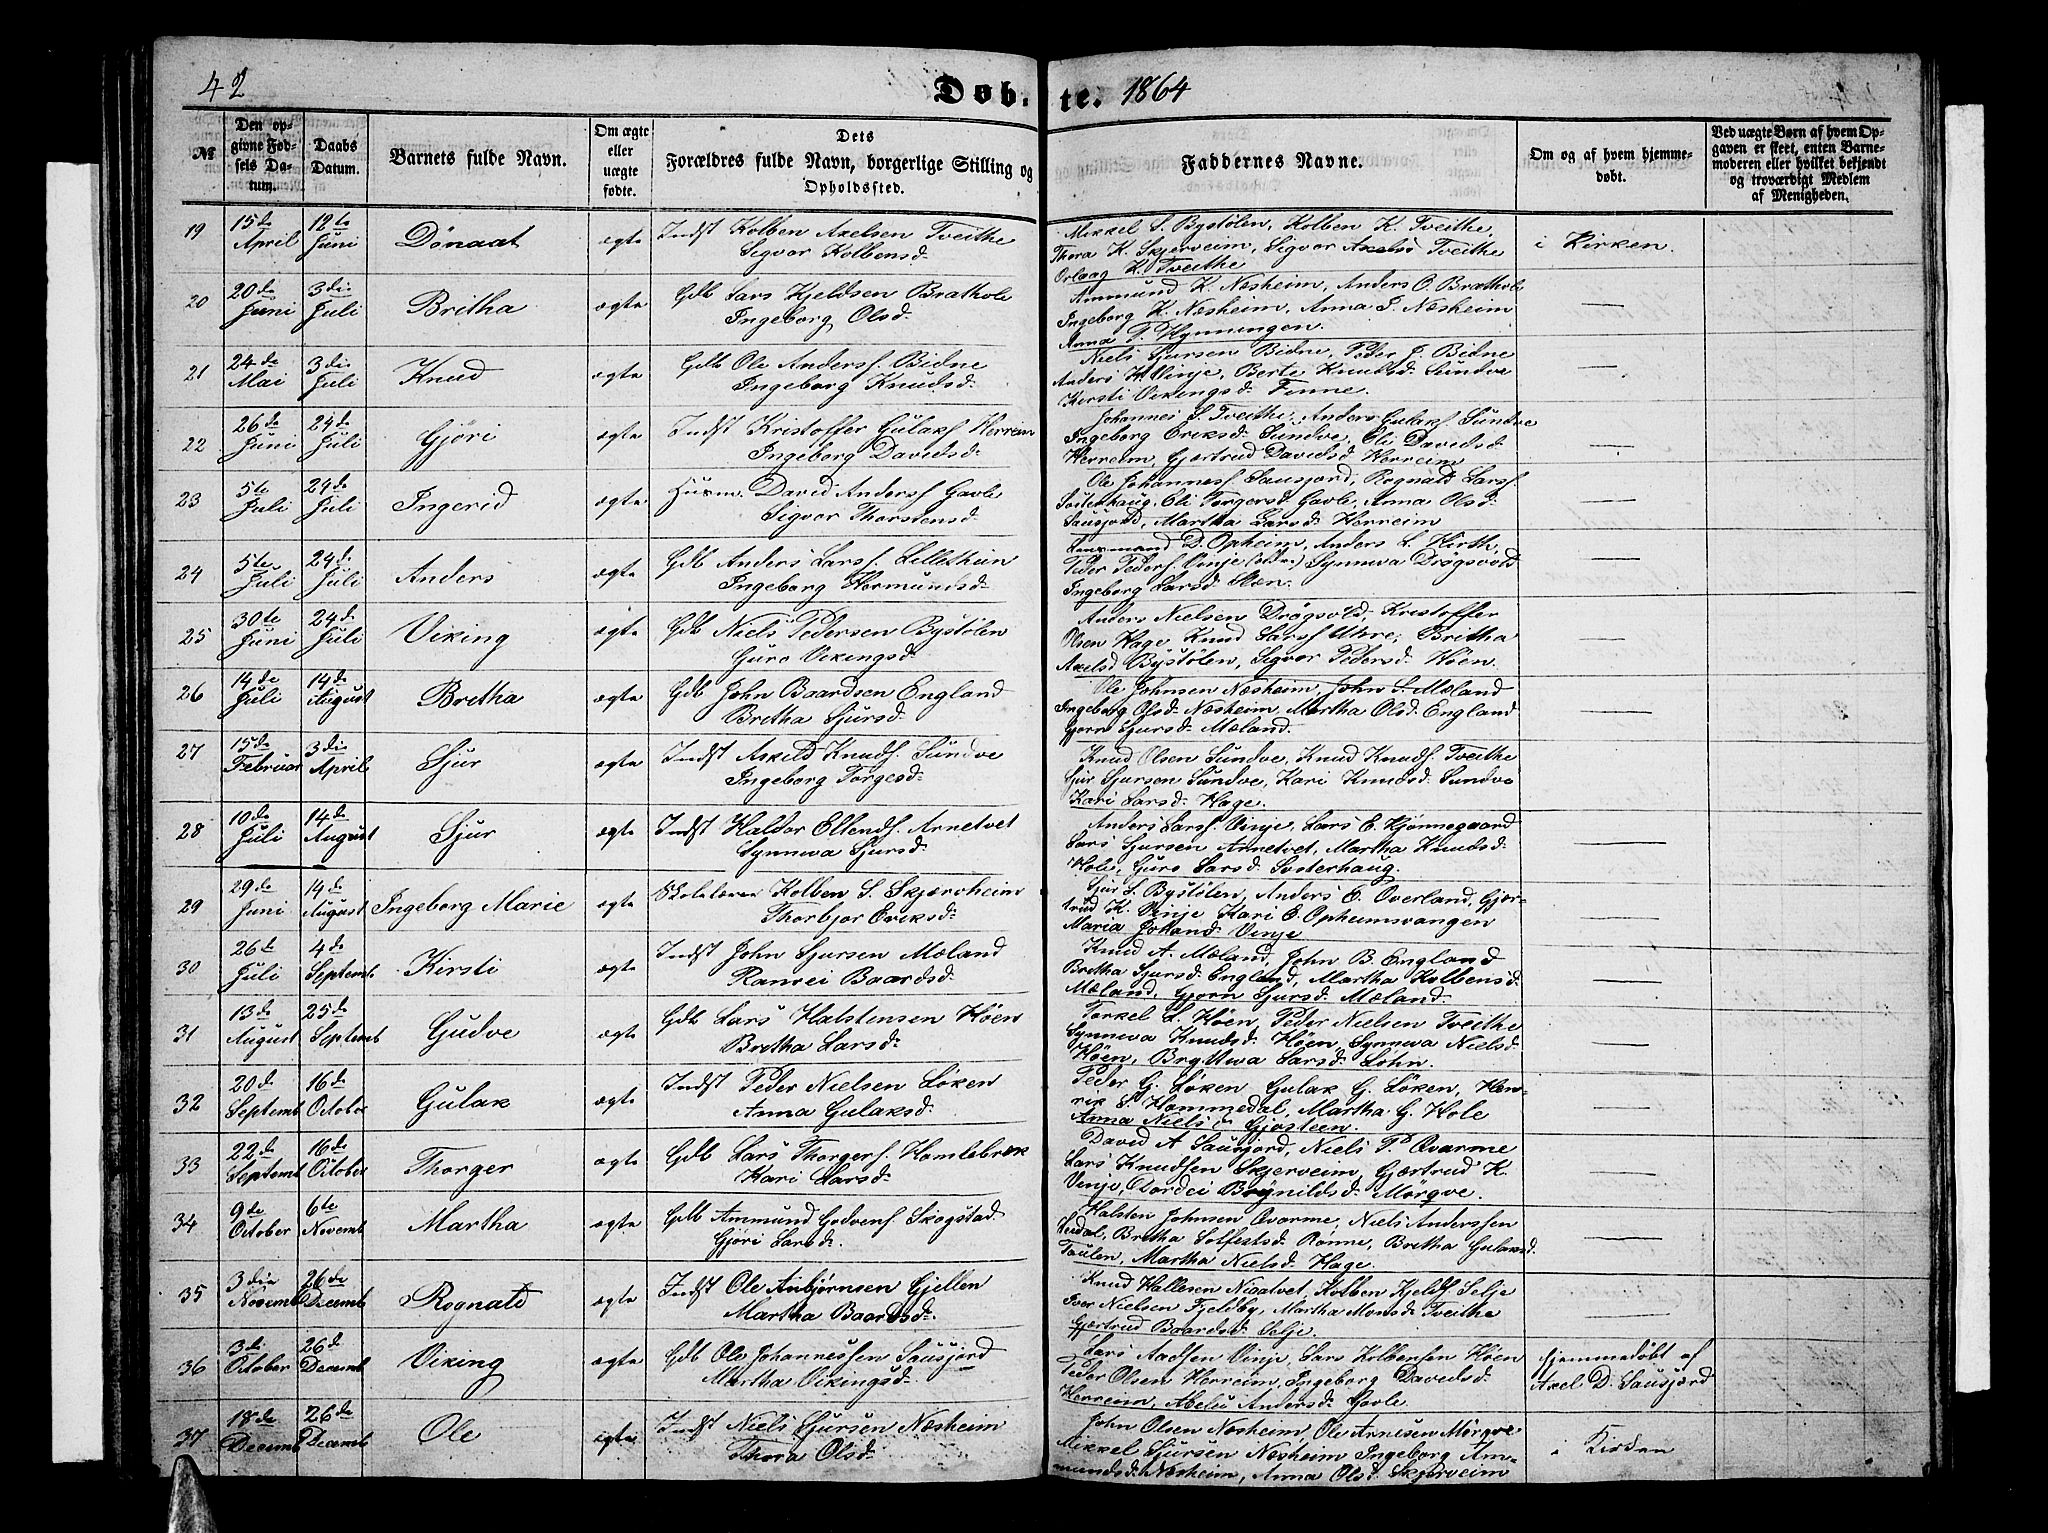 42
Døb-te. 1864
№
Den opgivne Fødsels Datum.
Daabs Datum.
Barnets fulde Navn.
Om ægte eller uægte fødte.
Dets Forældres fulde Navn, borgerlige Stilling og Opholdssted.
Faddernes Navne.
Om og af hvem hjemmedøbt.
Ved uægte Børn af hvem Opgaven er skeet, enten Barnemoderen eller hvilket bekjendt og troværdigt Medlem af Menigheden.
19 15de April 12te Juni Dönaat ægte Indst Kolben Axelsen Tveithe
Sigvor Kolbensd:
Mikkel S. Bystölen, Kolben K. Tveithe,
Thora K. Skjerveim, Sigvor Axelsd Tveithe
Orlaag K. Tveithe
i Kirken.
20 20de Juni 3die Juli Britha ægte Gdb Lars Kjeldsen Brathole
Ingeborg Olsd:
Ammund K. Næsheim, Anders O. Brathole
Ingeborg K. Næsheim, Anna J. Næsheim
Anna P. Hynningen.
21 24de Mai 3die Juli Knud ægte Gdb Ole Andersf. Bidne
Ingeborg Knudsd:
Niels Sjursen Bidne, Peder J. Bidne
Anders H. Vinje, Berte Knudsd: Sundve
Kersti Vikingsd: Finne.
22 26de Juni 24de Juli Gjöri ægte Indst Kristoffer Gulaksf Herreim
Ingeborg Davidsd:
Johannes S. Tveithe, Anders Gulaksf Sundve
Ingeborg Eriksd: Sundve, Eli Davidsd:
Herreim, Gjertrud Davidsd: Herreim
23 5te Juli 24de Juli Ingerid ægte Husm. David Andersf Gavle
Sigvor Thorstensd:
Ole Johannesf. Sausjord, Rognald Larsf
Eli Torgersd: Gavle, Anna Olsd:
Sausjord, Martha Larsd: Herreim
24 5te Juli 24de Juli Anders ægte Gdb Anders Larsf. Lillethein
Ingeborg Hermundsd:
Lensmand D. Opheim, Anders L. Hirth,
Peder Pedersf Vinje Synneva Drögsvold
Ingeborg Larsd:
25 30te Juni 24de Juli Viking ægte Gdb Niels Pedersen Bystölen
Guro Vikingsd:
Anders Nielsen Drögsvold, Kristoffer
Olsen Hage, Knud Larsf Uhre, Britha
Axelsd Bystölen, Sigvor Pedersd: Höen.
26 14de Juli 14de August Bretha ægte Gdb John Baardsen England
Bretha Sjursd:
Ole Johnsen Næsheim, John S. Mæland
Ingeborg Olsd: Næsheim, Martha Olsd: England
Gjorn Sjursd: Mæland.
27 15de Februar 3die April Sjur ægte Indst Askild Knudsf. Sundve
Ingeborg Torgesd:
Knud Olsen Sundve, Knud Knudsf. Tveithe
Sjur Sjursen Sundve, Kari Knudsd: Sundve
Kari Larsd: Hage.
28 10de Juli 14de August Sjur ægte Indst Haldor Ellendsf. Arnetvet
Synneva Sjursd:
Anders Larsf. Vinje, Lars E. Hjønnegaard
Lars Sjursen Arnetvet, Martha Knudsd:
Hole, Guro Larsd:
29 29de Juni 14de August Ingeborg Marie ægte Skolelærer Kolben S. Skjærvheim
Thorbjor Eriksd:
Sjur S. Bystölen, Anders E. Overland, Gjer-
trud K. Vinje, Kari O. Opheimsvangen
Maria Vinje
30 26de Juli 4de Septemb Kirsti ægte Indst John Sjursen Mæland
Ranvei Baardsd:
Knud A. Mæland, John B. England
Bretha Sjursd: England, Martha Kolbensd:
Mæland, Gjorn Sjursd: Mæland.
31 13de August 25de Septemb Gudve ægte Gdb Lars Halstensen Höen
Bretha Larsd:
Torkel L. Höen, Peder Nielsen Tveithe
Synneva Knudsd: Höen, Synneva Nielsd:
Höen, Bryttva Larsd: Löhn.
32 20de Septemb 16de October Gulak ægte Indst Peder Nielsen Löken
Anna Gulaksd:
Peder G. Löken, Gulak G. Löken, Hen-
rik S. Hommedal, Martha G. Hole
Anna Nielsd: Gjosteen.
33 22de Septemb 16de October Thorger ægte Gdb Lars Thorgersf. Hamlebræk
Kari Larsd:
David A. Sausjord, Niels P. Qvarme
Lars Knudsen Skjerveim, Gjertrud K.
Vinje, Dordei Brynildsd: Mörqve.
34 9de October 6te Novemb Martha ægte Gdb Ammund Godvensf Skogstad
Gjöri Larsd:
Halsten Johnsen Qvarme, Niels Anderssen
Bretha Solfestsd: Rönne, Bretha Gulaksd:
Taulen, Martha Nielsd: Hage.
35 3die Novemb 26de Decemb Rognald ægte Indst Ole Anbjørnsen Gjellen
Martha Baardsd:
Knud Hallesen Kolben Kjeldsf Selje
Iver Nielsen Fjeldby, Martha Monsd: Tveithe
Gjertrud Baardsd: Selje.
36 3di October 26de Decemb Viking ægte Gdb Ole Johannessen Sausjord
Martha Vikingsd:
Lars Aadsen Vinje, Lars Kolbensen Höen
Peder Olsen Herreim, Ingeborg Davidsd:
Herreim, Andersd: Gavle
hjemmedøbt af
Axel D. Sausjord
37 18de Decemb 26de Decemb Ole ægte Indst Niels Sjursen Næsheim
Thora Olsd:
John Olsen Næsheim, Ole Arnesen Mörqve
Mikkel Sjursen Næsheim Ingeborg Am-
mundsd: Næsheim, Anna Olsd: Skjerveim
i Kirken